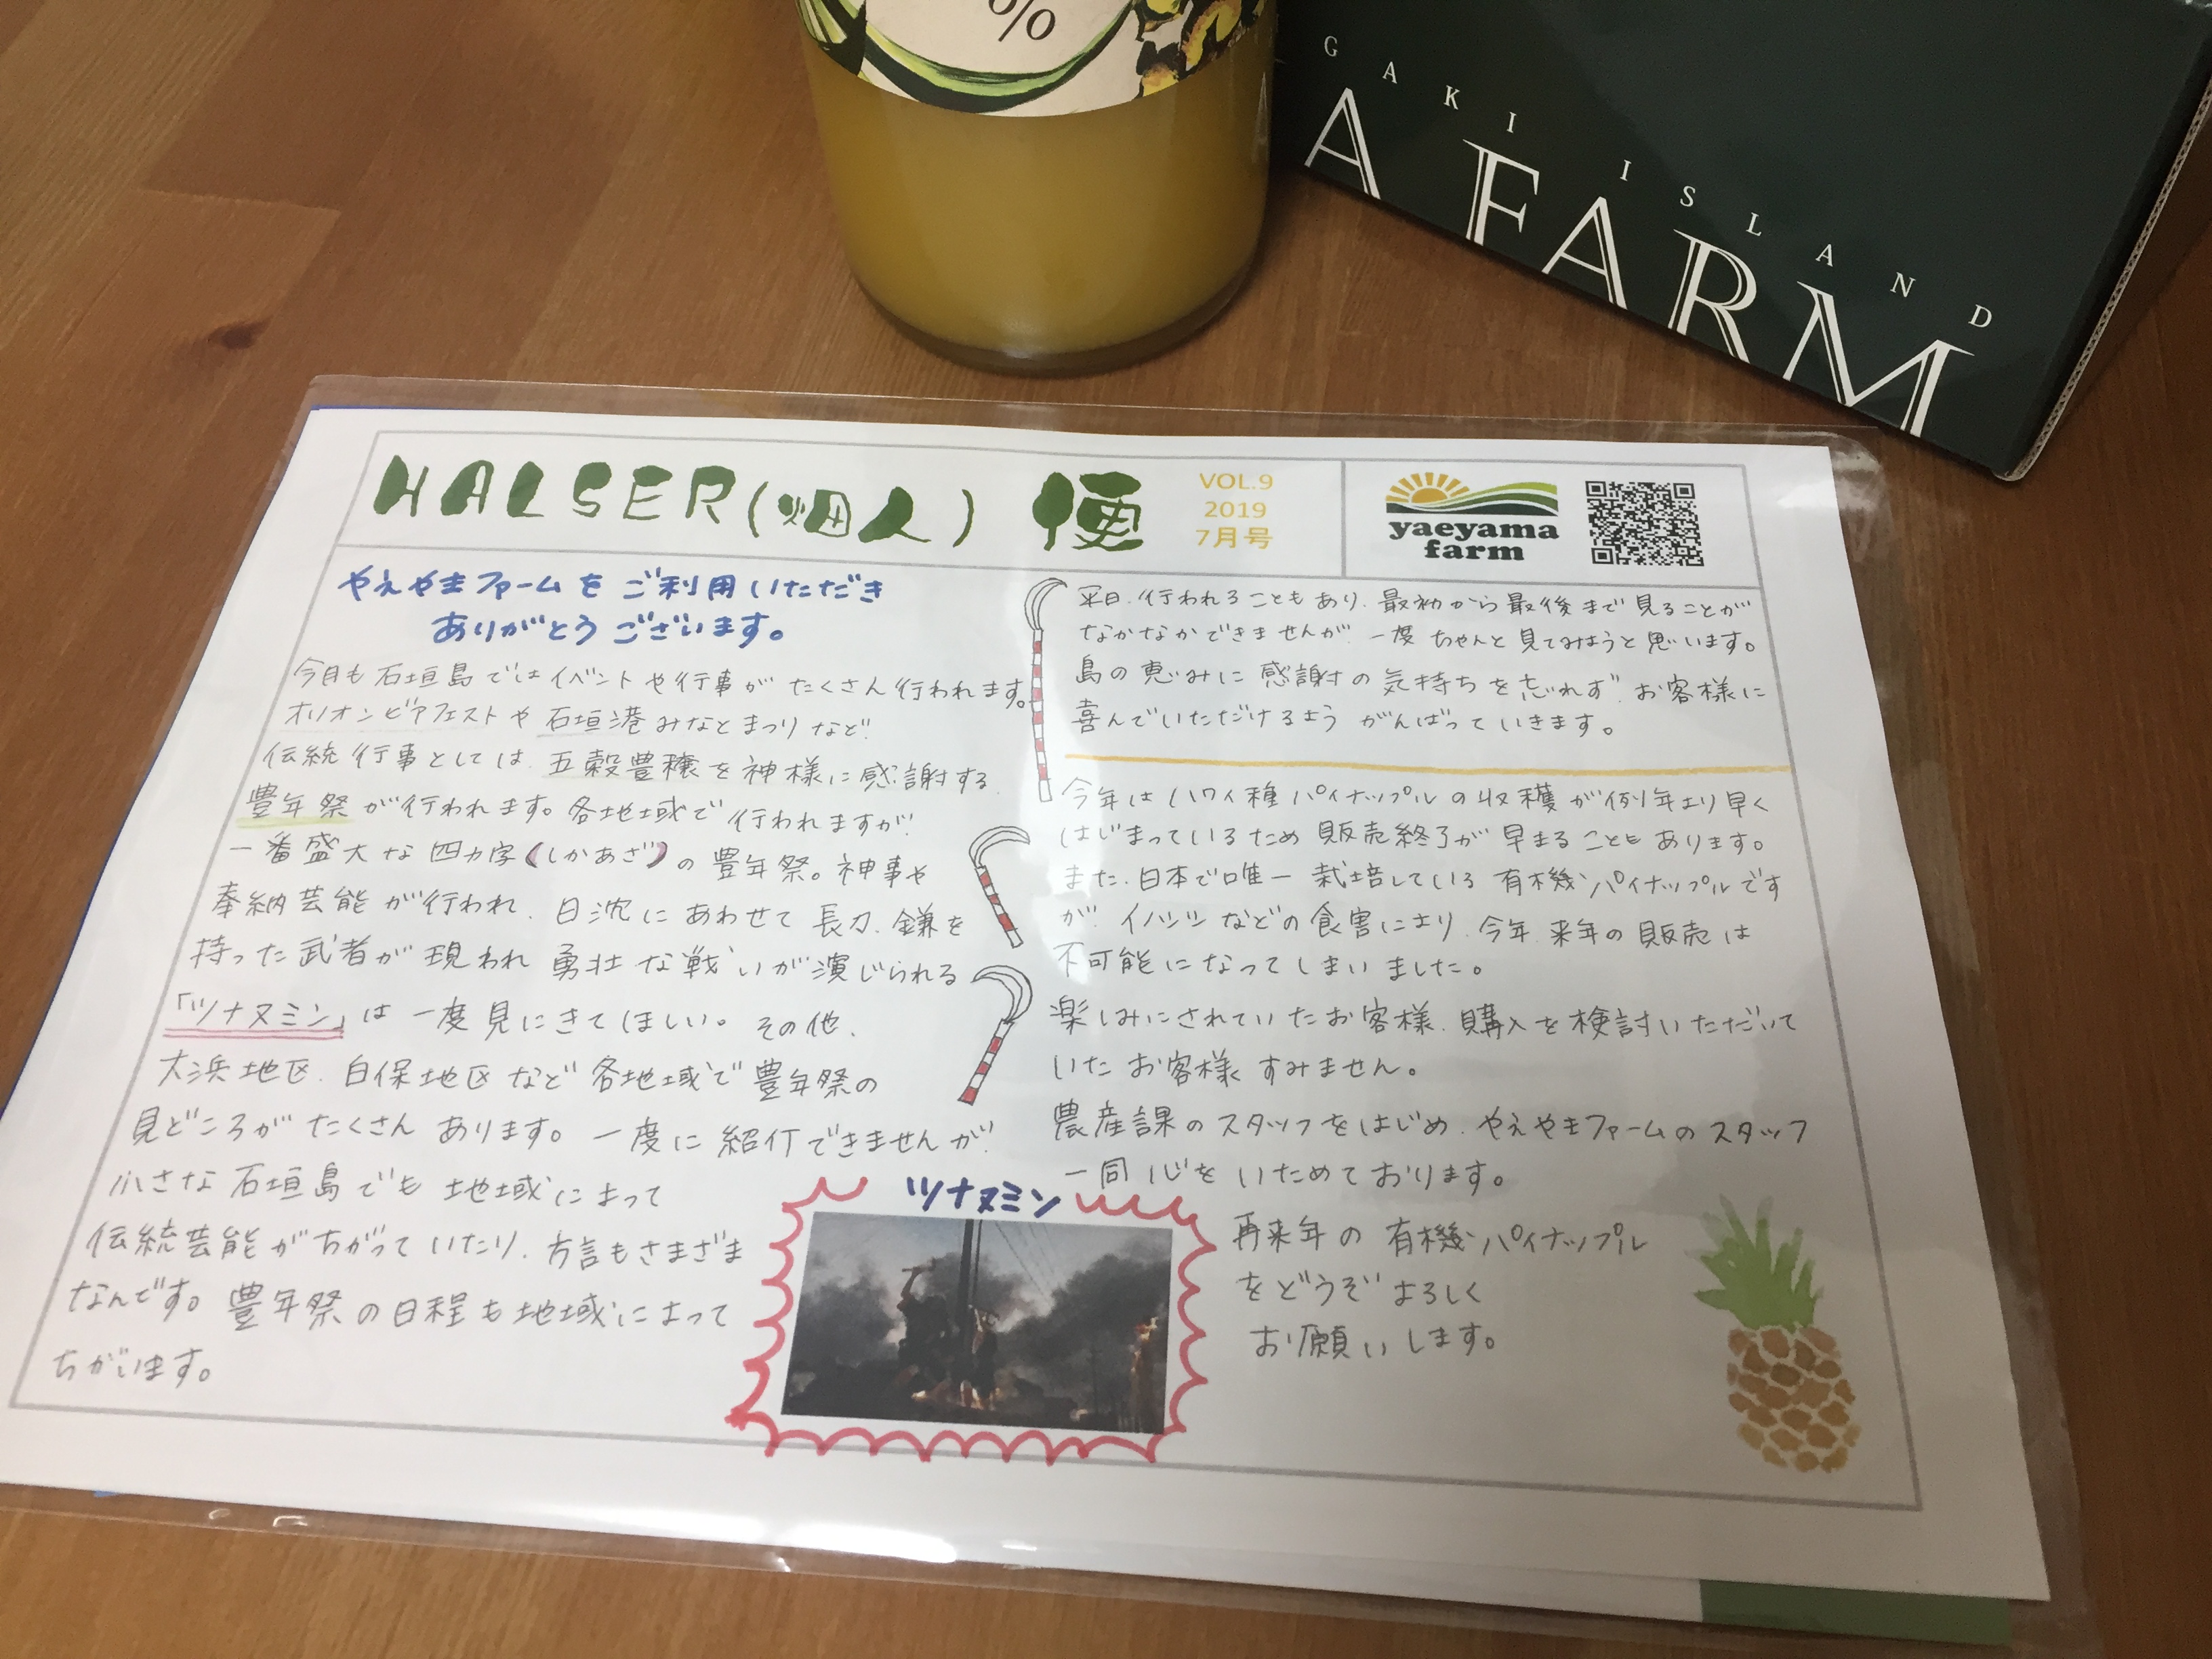 %
GAKI ISLAND
A FARM
HALSER(畑人) 便
VOL.9
2019
7月号
yaeyama
farm
やえやまファームをご利用いただき
ありがとうございます。
今月も石垣島ではイベントや行事がたくさん行われます。
オリオンビアフェストや石垣港みなとまつりなど!
伝統行事としては、五穀豊穣を神様に感謝する
豊年祭が行われます。各地域で行われますが、
一番盛大な四カ字(しかあざ)の豊年祭。神事や
奉納芸能が行われ、日沈にあわせて長刀、鎌を
持った武者が現われ勇壮な戦いが演じられる
「ツナヌミン」は一度見にきてほしい。その他、
大浜地区、白保地区など各地域で豊年祭の
見どころがたくさんあります。一度に紹介できませんが、
小さな石垣島でも地域によって
伝統芸能がちがっていたり、方言もさまざま
なんです。豊年祭の日程も地域によって
ちがいます。
ツナヌミン
平日、行われることもあり、最初から最後まで見ることが
なかなかできませんが、一度ちゃんと見てみようと思います。
島の恵みに感謝の気持ちを忘れず、お客様に
喜んでいただけるようがんばっていきます。
今年はハワイ種パイナップルの収穫が例年より早く
はじまっているため販売終了が早まることもあります。
また、日本で唯一栽培している有機パイナップルです
が、イノシシなどの食害により、今年、来年の販売は
不可能になってしまいました。
楽しみにされていたお客様、購入を検討いただいて
いたお客様すみません。
農産課のスタッフをはじめ、やえやまファームのスタッフ
一同心をいためております。
再来年の有機パイナップル
をどうぞよろしく
お願いします。